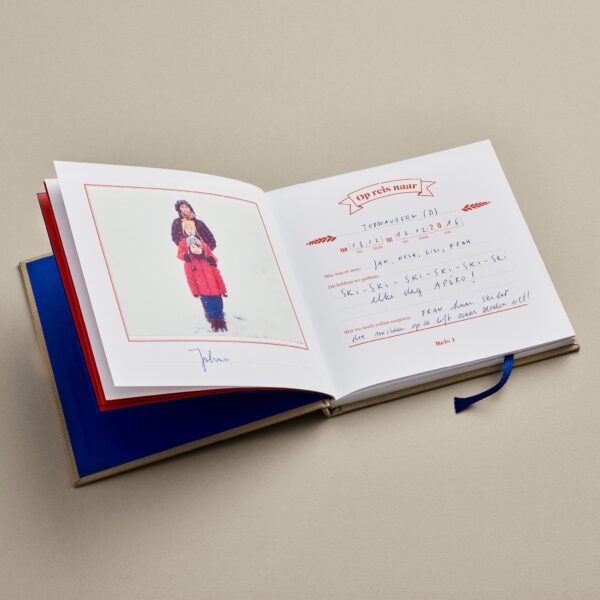 Op reis naar
VAN 05.02 TOT 12.02 2016
Wie was er mee: JAN, NELE, LILI, FRAN
Dit hebben we gedaan:
SKi-SKi-SKi-SKi-SKi-SKi
elke dag APÉRO!
Wat we nooit zullen vergeten: FRAN haar ski dat
op de lift naar beneden
Reis 1